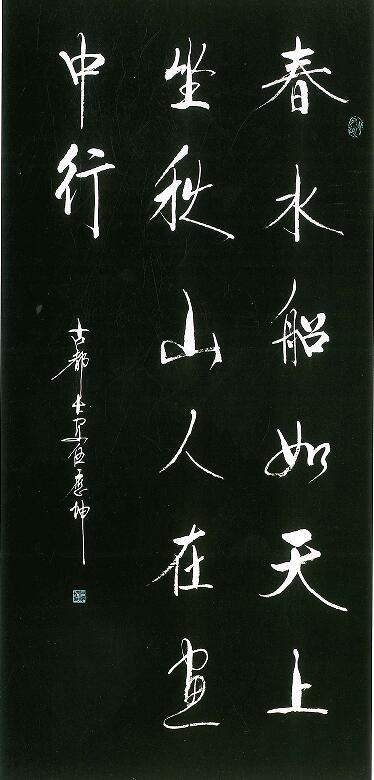 春水船如天上
坐秋山人在画
中行
古都